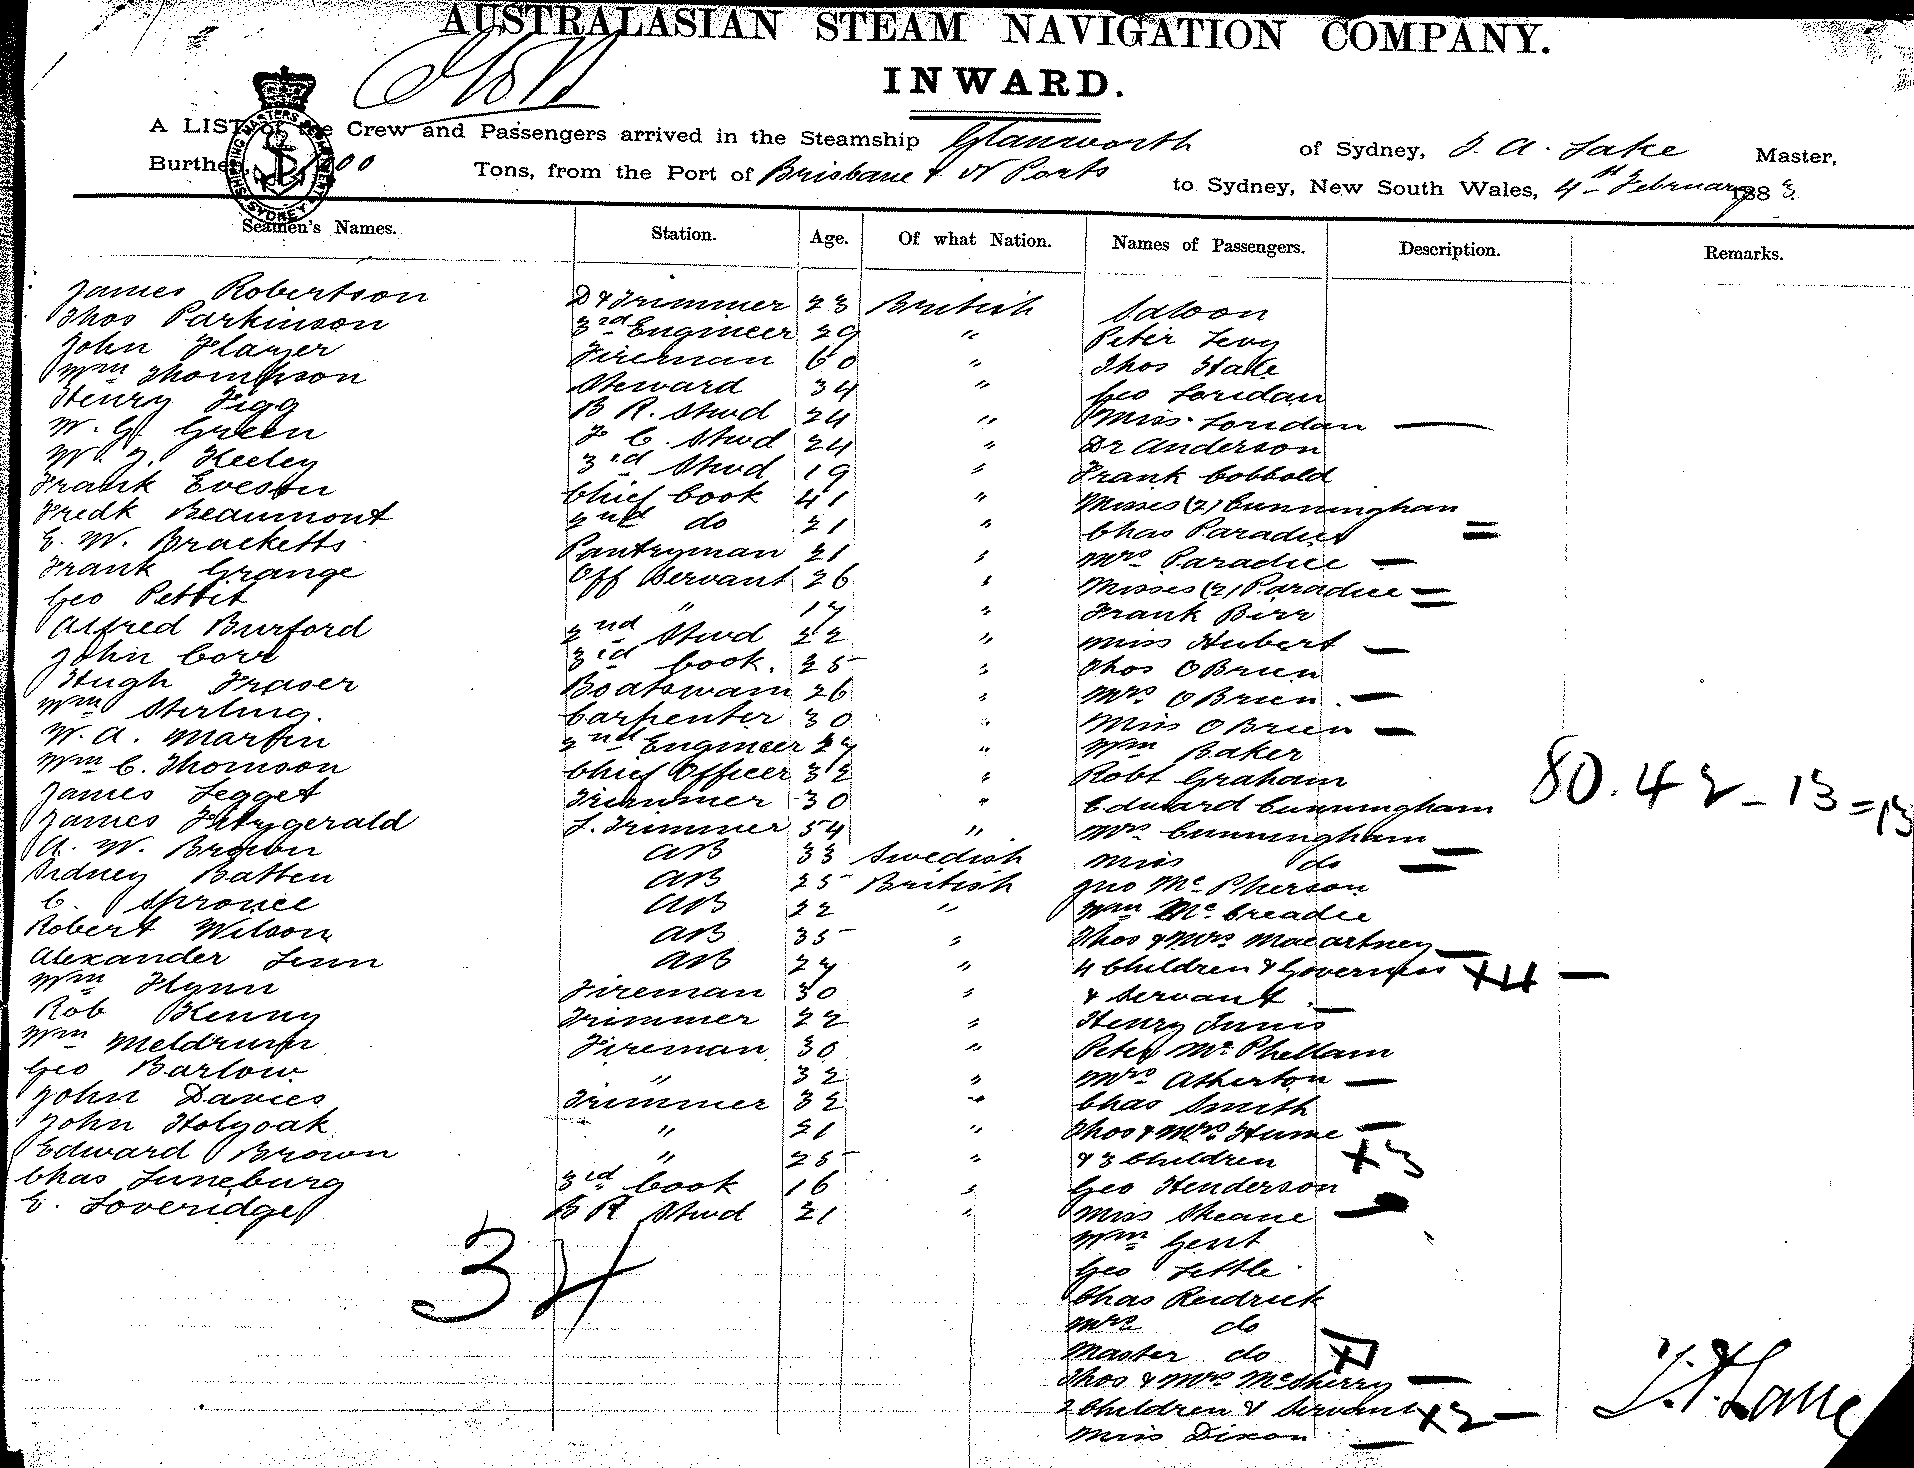 AUSTRALASIAN STEAM NAVIGATION COMPANY.
INWARD.
A LIST of the Crew and Passengers arrived in the Steamship Glanworth of Sydney, J. A. Lake Master,
Burthen Tons, from the Port of Brisbane & N Ports to Sydney, New South Wales, 4th February 1883.
Seamen's Names. Station. Age. Of what Nation. Names of Passengers. Description. Remarks.
James Robertson D & Trimmer 23 British Saloon
Thos Parkinson 3rd Engineer 29 " Peter Levy
John Player Fireman 60 " Thos Hale
Wm Thompson Steward 34 " Geo Loridan
Henry Figg B R. Stwd 24 " Miss Loridan —
W. G. Green F C. Stwd 24 " Dr Anderson
W. J. Keeley 3rd Stwd 19 " Frank Cobbold
Frank Eveson Chief Cook 41 " Misses (2) Cunningham =
Fredk Beaumont 2nd do 21 " Chas Paradice
E. W. Bracketts Pantryman 21 " Mrs Paradice —
Frank Grange Off Servant 26 " Misses (2) Paradice =
Geo Pettit " 17 " Frank Birr
Alfred Burford 2nd Stwd 22 " Miss Hubert —
John Corr 3rd Cook. 25 " Thos O Brien
Hugh Fraser Boatswain 26 " Mrs O Brien. —
Wm Sterling. Carpenter 30 " Miss O Brien —
W. A. Martin 2nd Engineer 27 " Wm Baker
Wm C. Thomson Chief Officer 32 " Robt Graham
James Legget Trimmer 30 " Edward Cunningham 80.42-13=13
James Fitzgerald S. Trimmer 54 " Mrs Cunningham —
A. W. Brown AB 33 Swedish Miss do —
Sidney Batten AB 25 British Jno McPherson
C. Sprouce AB 22 " Wm McCreadie
Robert Wilson AB 35 " Thos & Mrs Macartney —
Alexander Linn AB 27 " 4 Children & Governess X4 —
Wm Flynn Fireman 30 " & Servant. —
Rob Kenny Trimmer 22 " Henry Innis
Wm Meldrum Fireman 30 " Peter Mc Phellam
Geo Barlow " 32 " Mrs Atherton —
John Davies Trimmer 32 " Chas Smith
John Holyoak " 21 " Thos & Mrs Hume —
Edward Brown " 25 " & 3 Children X3
Chas Luneburg 3rd Cook 16 " Geo Henderson
E. Loveridge B R Stwd 21 " Miss Skeane —
34 Wm Gent
Geo Lettle
Chas Reidrick
Mrs do
Master do X1
Thos & Mrs McSherry —
2 Children & Servant X2 —
Miss Dixon —